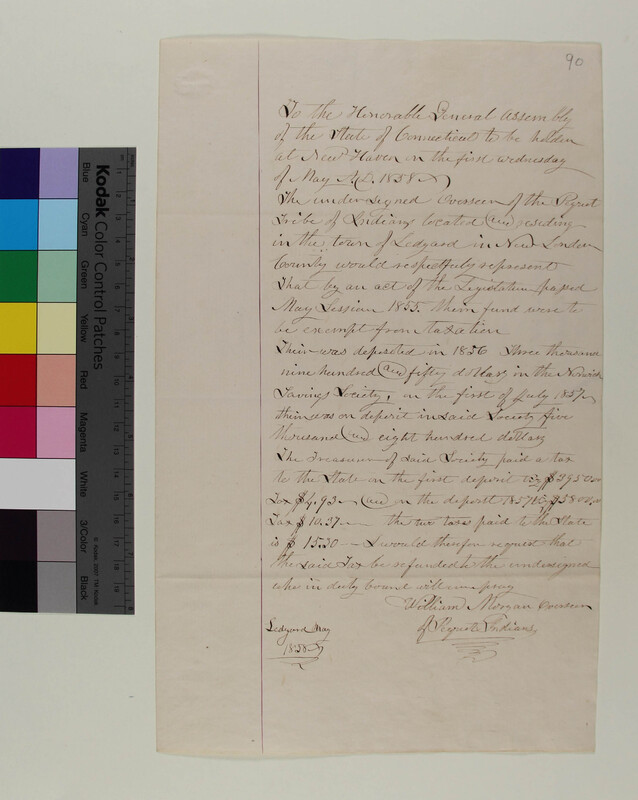 90
To the Honorable General Assembly
of the State of Connecticut to be holden
at New Haven on the first wednesday
of May A.D. 1858
The undersigned Overseer of the Pequot
Tribe of Indians located and residing
in the town of Ledyard in New London
County would respectfuly represent
That by an act of the Legislature passed
May Session 1855. their fund were to
be exempt from taxation
Their was deposited in 1856 Three thousand
nine hundred and fifty dollars in the Norwich
Savings Society, on the first of July 1857
their was on deposit in said Society five
thousand and eight hundred dollars
The Treasurer of said Society paid a tax
to the State on the first deposit $3950.00
Tax $4.93 and on the deposit 1857 $5800.00
Tax $10.37 — the two taxes paid to the State
is $15.30 — I would therefor request that
the said Tax be refunded to the undersigned
who in duty bound will ever pray
William Morgan Overseer
of Pequot Indians
Ledyard May
1858
Kodak Color Control Patches
Blue
Cyan
Green
Yellow
Red
Magenta
White
3/Color
Black
© Kodak, 2007 TM: Kodak
1
2
3
4
5
6
7
8
9
10
11
12
13
14
15
16
17
18
19